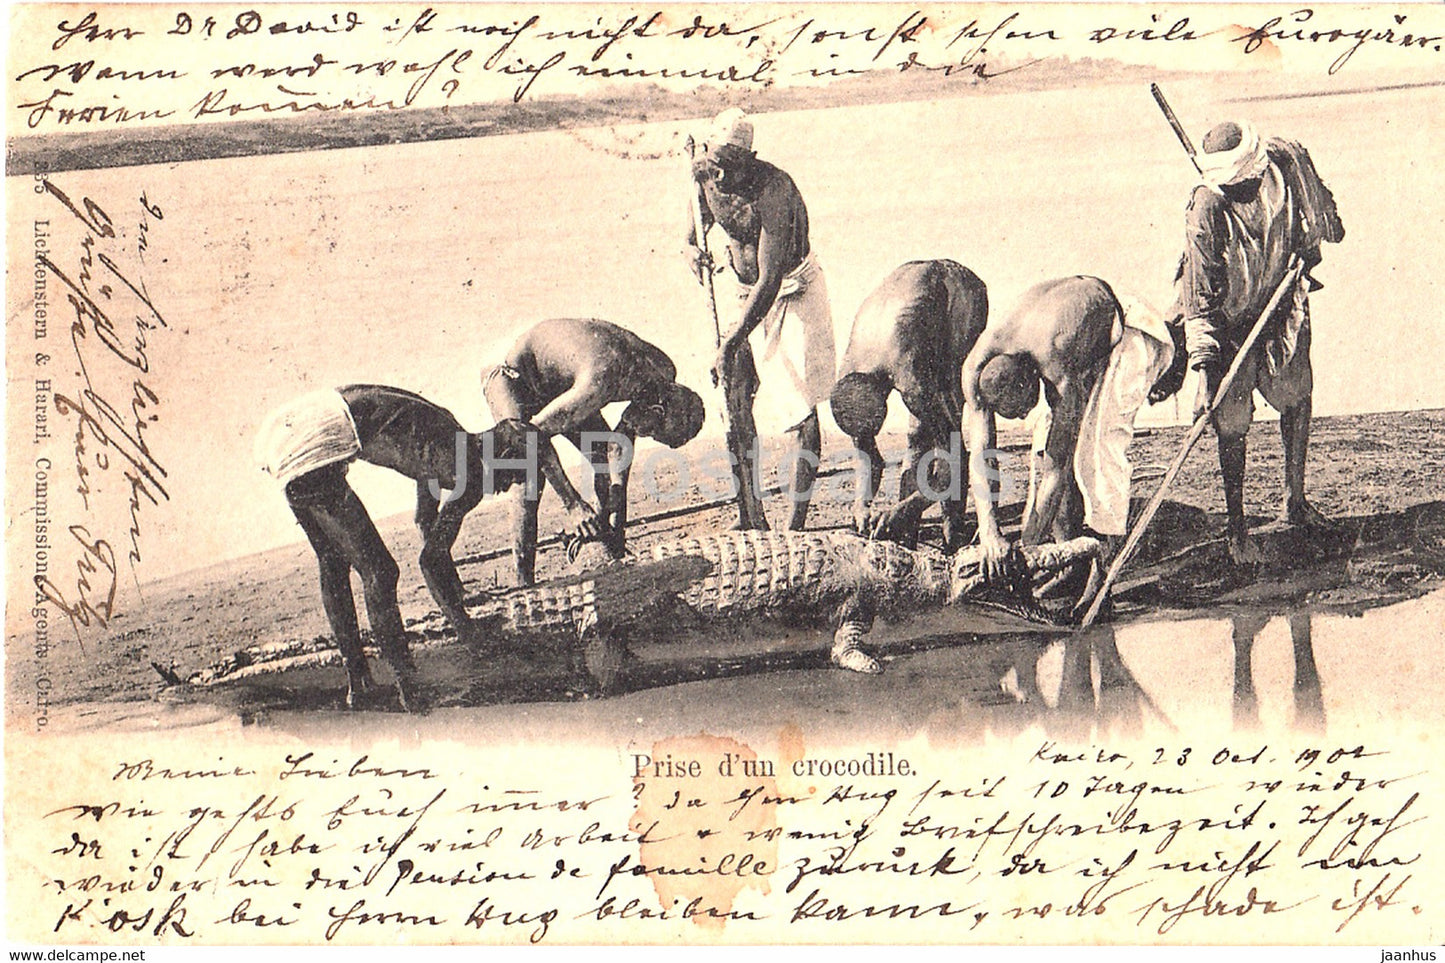 Herr Dr David ist noch nicht da, sonst schon viele Europäer.
wann werd wohl ich einmal in die
Ferien kommen?
235 Lichtenstern & Harari, Commissions-Agents, Cairo.
Die herzlichsten
Grüße. Euer Fritz
JH Postcards
Prise d'un crocodile.
Kairo, 23 Oct. 1902
Meine Lieben
wie gehts Euch immer? da Herr Hug seit 10 Tagen wieder
da ist, habe ich viel Arbeit + wenig Briefschreibezeit. Ich geh
wieder in die Pension de famille zurück, da ich nicht im
Kiosk bei Herrn Hug bleiben kann, was schade ist.
jaanhus